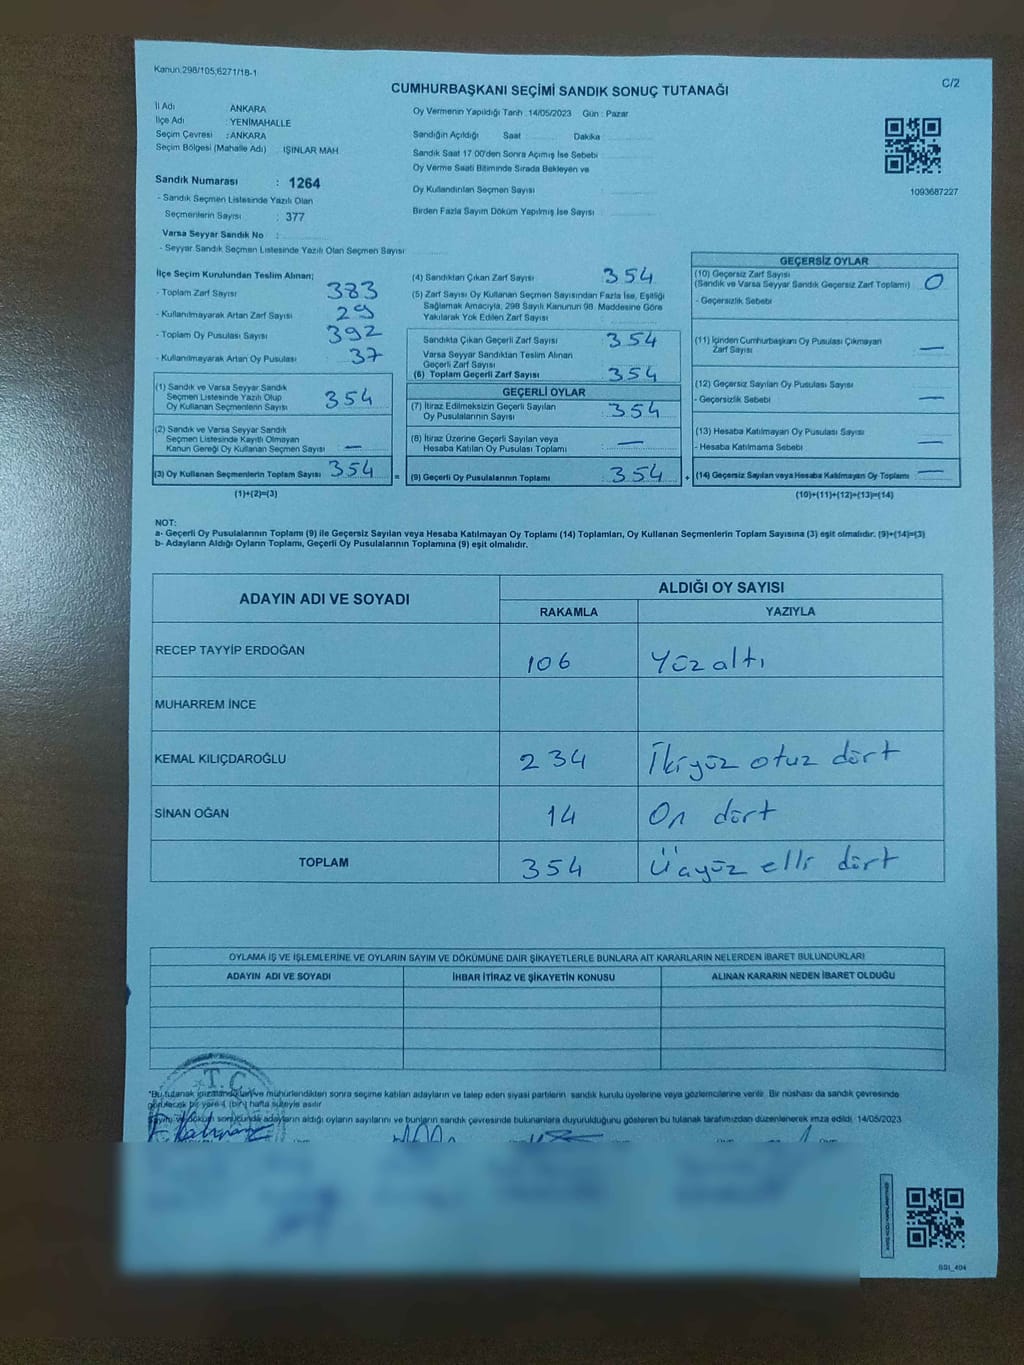 Kanun.298/105,6271/18-1
C/2
CUMHURBAŞKANI SEÇİMİ SANDIK SONUÇ TUTANAĞI
İl Adı ANKARA
İlçe Adı : YENİMAHALLE
Seçim Çevresi : ANKARA
Seçim Bölgesi (Mahalle Adı) . IŞINLAR MAH
Sandık Numarası : 1264
- Sandık Seçmen Listesinde Yazılı Olan
Seçmenlerin Sayısı : 377
Varsa Seyyar Sandık No :
- Seyyar Sandık Seçmen Listesinde Yazılı Olan Seçmen Sayısı
Oy Vermenin Yapıldığı Tarih : 14/05/2023 Gün : Pazar
Sandığın Açıldığı Saat Dakika
Sandık Saat 17:00'den Sonra Açımış İse Sebebi
Oy Verme Saati Bitiminde Sırada Bekleyen ve
Oy Kullandırılan Seçmen Sayısı :
Birden Fazla Sayım Döküm Yapılmış İse Sayısı :
1093687227
İlçe Seçim Kurulundan Teslim Alınan;
- Toplam Zarf Sayısı 383
- Kullanılmayarak Artan Zarf Sayısı 29
- Toplam Oy Pusulası Sayısı 392
- Kullanılmayarak Artan Oy Pusulası 37
(1) Sandık ve Varsa Seyyar Sandık
Seçmen Listesinde Yazılı Olup
Oy Kullanan Seçmenlerin Sayısı 354
(2) Sandık ve Varsa Seyyar Sandık
Seçmen Listesinde Kayıtlı Olmayan
Kanun Gereği Oy Kullanan Seçmen Sayısı —
(3) Oy Kullanan Seçmenlerin Toplam Sayısı 354
(1)+(2)=(3)
(4) Sandıktan Çıkan Zarf Sayısı 354
(5) Zarf Sayısı Oy Kullanan Seçmen Sayısından Fazla İse, Eşitliği
Sağlamak Amacıyla, 298 Sayılı Kanunun 98. Maddesine Göre
Yakılarak Yok Edilen Zarf Sayısı
Sandıkta Çıkan Geçerli Zarf Sayısı : 354
Varsa Seyyar Sandıktan Teslim Alınan
Geçerli Zarf Sayısı
(6) Toplam Geçerli Zarf Sayısı 354
GEÇERLİ OYLAR
(7) İtiraz Edilmeksizin Geçerli Sayılan
Oy Pusulalarının Sayısı : 354
(8) İtiraz Üzerine Geçerli Sayılan veya
Hesaba Katılan Oy Pusulası Toplamı —
= (9) Geçerli Oy Pusulalarının Toplamı 354 +
GEÇERSİZ OYLAR
(10) Geçersiz Zarf Sayısı
(Sandık ve Varsa Seyyar Sandık Geçersiz Zarf Toplamı) 0
- Geçersizlik Sebebi
(11) İçinden Cumhurbaşkanı Oy Pusulası Çıkmayan
Zarf Sayısı —
(12) Geçersiz Sayılan Oy Pusulası Sayısı
- Geçersizlik Sebebi —
(13) Hesaba Katılmayan Oy Pusulası Sayısı
- Hesaba Katılmama Sebebi —
(14) Geçersiz Sayılan veya Hesaba Katılmayan Oy Toplamı —
(10)+(11)+(12)+(13)=(14)
NOT:
a- Geçerli Oy Pusulalarının Toplamı (9) ile Geçersiz Sayılan veya Hesaba Katılmayan Oy Toplamı (14) Toplamları, Oy Kullanan Seçmenlerin Toplam Sayısına (3) eşit olmalıdır. (9)+(14)=(3)
b- Adayların Aldığı Oyların Toplamı, Geçerli Oy Pusulalarının Toplamına (9) eşit olmalıdır.
ADAYIN ADI VE SOYADI
ALDIĞI OY SAYISI
RAKAMLA YAZIYLA
RECEP TAYYİP ERDOĞAN 106 Yüz altı
MUHARREM İNCE
KEMAL KILIÇDAROĞLU 234 İkiyüz otuz dört
SİNAN OĞAN 14 On dört
TOPLAM 354 Üçyüz elli dört
OYLAMA İŞ VE İŞLEMLERİNE VE OYLARIN SAYIM VE DÖKÜMÜNE DAİR ŞİKAYETLERLE BUNLARA AİT KARARLARIN NELERDEN İBARET BULUNDUKLARI
ADAYIN ADI VE SOYADI İHBAR İTİRAZ VE ŞİKAYETİN KONUSU ALINAN KARARIN NEDEN İBARET OLDUĞU
T.C.
*Bu tutanak imzalandıktan ve mühürlendikten sonra seçime katılan adayların ve talep eden siyasi partilerin sandık kurulu üyelerine veya gözlemcilerine verilir. Bir nüshası da sandık çevresinde
görülecek bir yere 1 (bir) hafta süreyle asılır
Sayım ve döküm sonucunda adayların aldığı oyların sayılarını ve bunların sandık çevresinde bulunanlara duyurulduğunu gösteren bu tutanak tarafımızdan düzenlenerek imza edildi. 14/05/2023
SSI_404